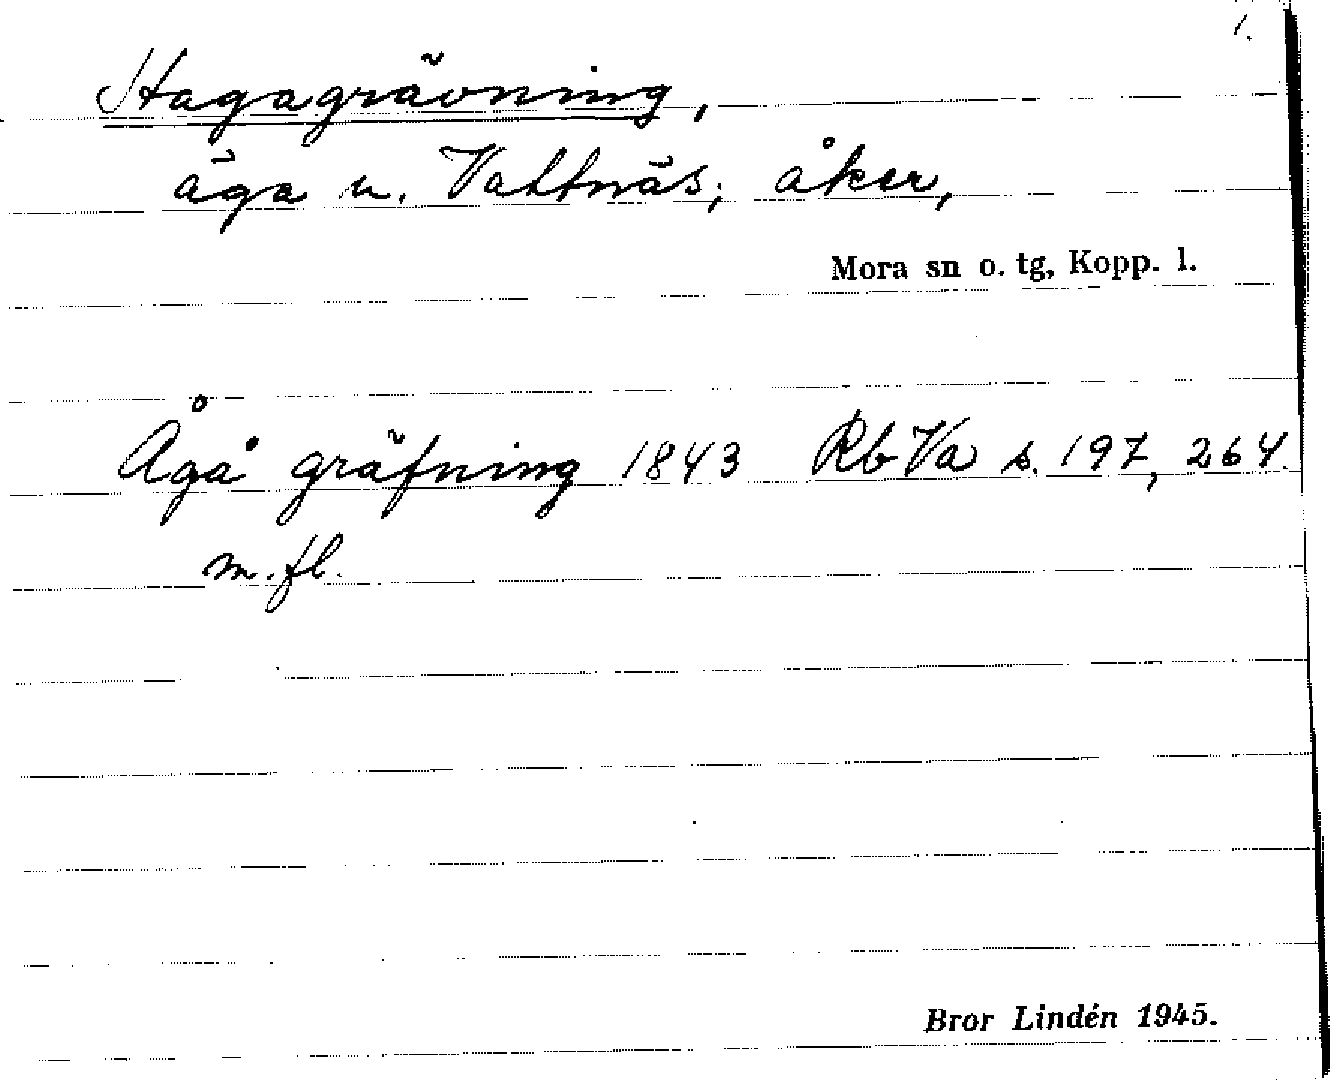 1.
Hagagrävning,
äga u. Vattnäs; åker,
Mora sn o. tg, Kopp. l.
Ågå gräfning 1843 Rb Va s. 197, 264
m. fl.
Bror Lindén 1945.